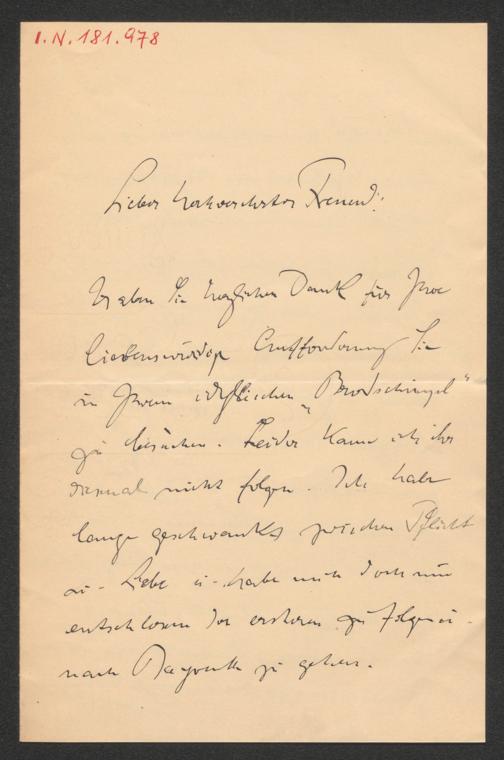 I.N. 181.978
Lieber hochverehrter Freund!
Haben Sie herzlichen Dank für Ihre
liebenswürdige Aufforderung Sie
in Ihrem idyllischen „
zu besuchen. Leider kann ich ihr
diesmal nicht folgen. Ich habe
lange geschwankt zwischen Pflicht
u. Liebe u. habe mich doch nun
entschlossen der ersteren zu folgen u.
nach Bayreuth zu gehen.